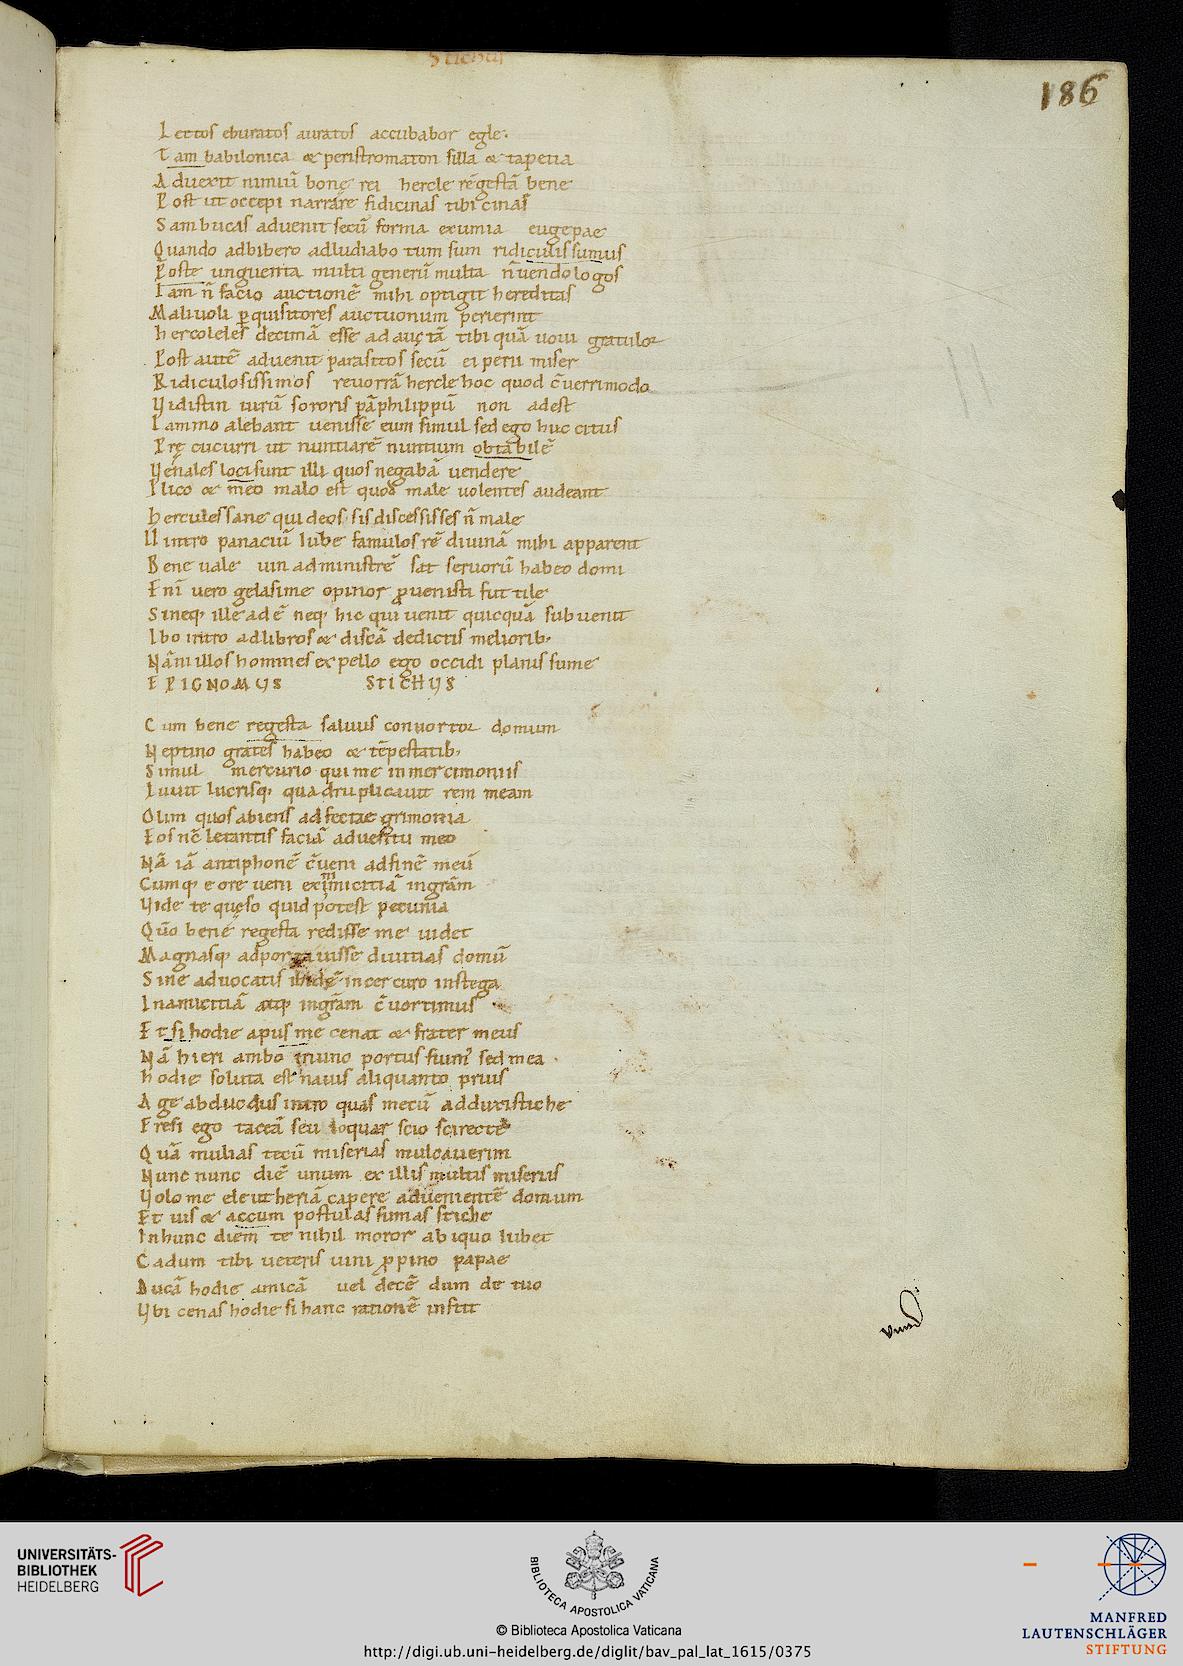 Stichus
186
Lectos eburatos auratos accubabor egle.
Tam babilonica & peristromaton silla & tapetia
Aduexit nimiū bonę rei hercle rēgestā bene
Post ut occepi narrare fidicinas tibi cinas
Sambucas aduenit secū forma eximia eugepae
Quando adbibero adludiabo tum sum ridiculissumus
Poste unguenta multi generū multa ñ uendo logos
Iam ñ facio auctionē mihi optigit hereditas
Maliuoli perquisitores auctionum perierint
hercoleles decimā esse ad auctā tibi quā uoui gratulor
Post autē aduenit parasitos secū ei perii miser
Ridiculosissimos reuorrā hercle hoc quod c̄uerri modo
Vidistin uirū sororis pāphilippū non adest
Iamino alebant uenisse eum simul sed ego huc citus
Prę cucurri ut nuntiarē nuntium obtabilē
Venales loci sunt illi quos negabā uendere
Ilico & meo malo est quod male uolentes audeant
hercules sane qui deos sis discessisses ñ male
II intro panaciū Iube famulos rē diuinā mihi apparent
Bene uale uin administrē sat seruorū habeo domi
Enī uero gelasime opinor ꝓuenisti futtile
Si neq; ille ad ē neq; hic qui uenit quicquā subuenit
Ibo intro ad libros & discā de dictis meliorib;
Nā ni illos homines expello ego occidi planissume
EPIGNOMUS STICHUS
Cum bene regesta saluus conuortor domum
Neptino grates habeo & tēpestatib;
Simul mercurio qui me in mercimoniis
Iuuit lucrisq; quadruplicauit rem meam
Olim quos abiens adfectae grimonia
Eos nc̄ letantis faciā aduentu meo
Nā iā antiphonē c̄ueni adfinē meū
Cumq; eo reueni ex inimicitiā in grām
Vide te quęso quid potest pecunia
Qūo bene regesta redisse me uidet
Magnasq; adportauisse diuitias domū
Sine aduocatis ibidē in cercuro in stega
In amicitiā atq; in grām c̄uortimus
Et si hodie apus me cenat & frater meus
Nā hieri ambo in uno portus fuim' sed mea
hodie soluta est nauis aliquanto prius
Age abduc hus intro quas mecū adduxi stiche
Eresi ego taceā seu loquar scio scire te
Quā multas tecū miserias mulcauerim
Hunc nunc diē unum ex illis multis miseriis
Volo me eleutheriā capere aduenientē domum
Et uis & accum postulas sumas stiche
In hunc diem te nihil moror abi quo lubet
Cadum tibi ueteris uini ꝓpino papae
Ducā hodie amicā uel decē dum de tuo
Vbi cenas hodie si hanc rationē instit
UNIVERSITÄTS-
BIBLIOTHEK
HEIDELBERG
BIBLIOTECA APOSTOLICA VATICANA
© Biblioteca Apostolica Vaticana
http://digi.ub.uni-heidelberg.de/diglit/bav_pal_lat_1615/0375
MANFRED
LAUTENSCHLÄGER
STIFTUNG